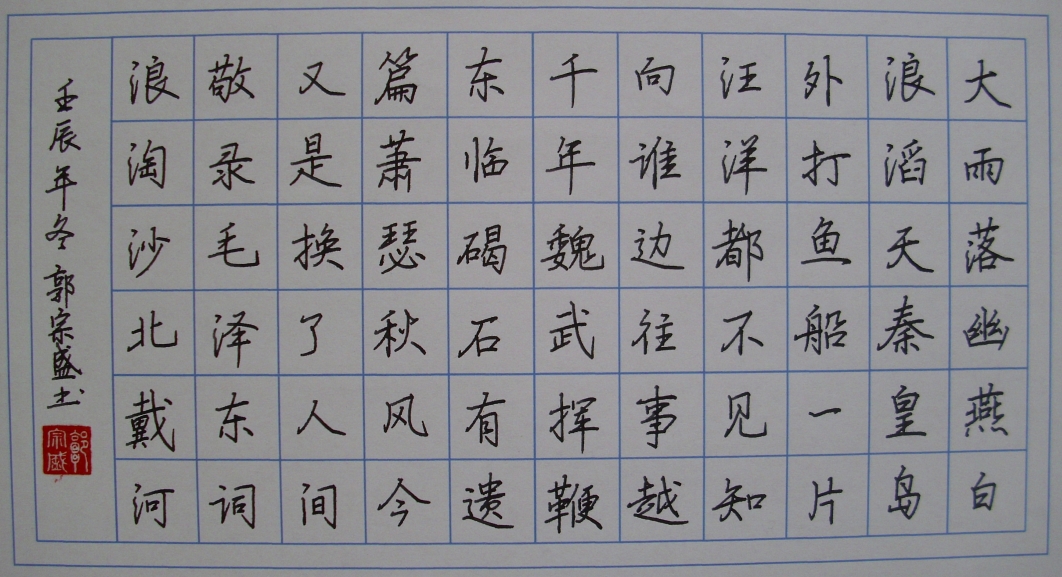 大雨落幽燕白
浪滔天秦皇岛
外打鱼船一片
汪洋都不见知
向谁边往事越
千年魏武挥鞭
东临碣石有遗
篇萧瑟秋风今
又是换了人间
敬录毛泽东词
浪淘沙北戴河
壬辰年冬郭宗盛书
郭宗盛